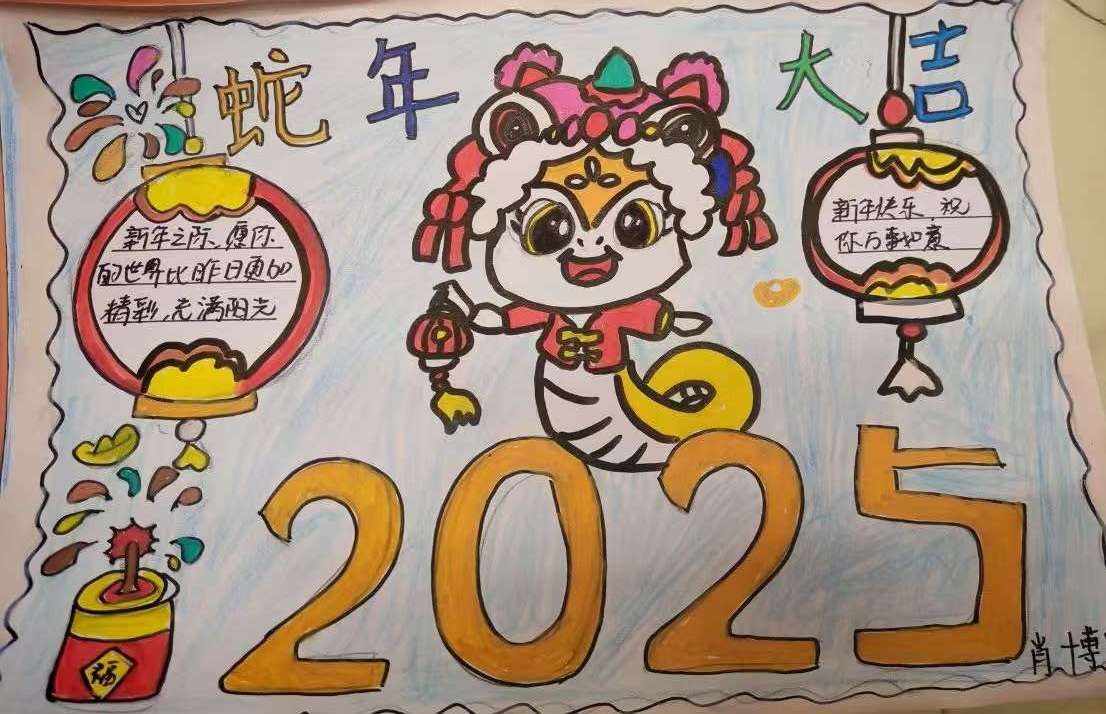 蛇年大吉
新年之际、愿你
的世界比昨日更加
精彩,充满阳光
新年快乐,祝
你万事如意
2025
福
肖博